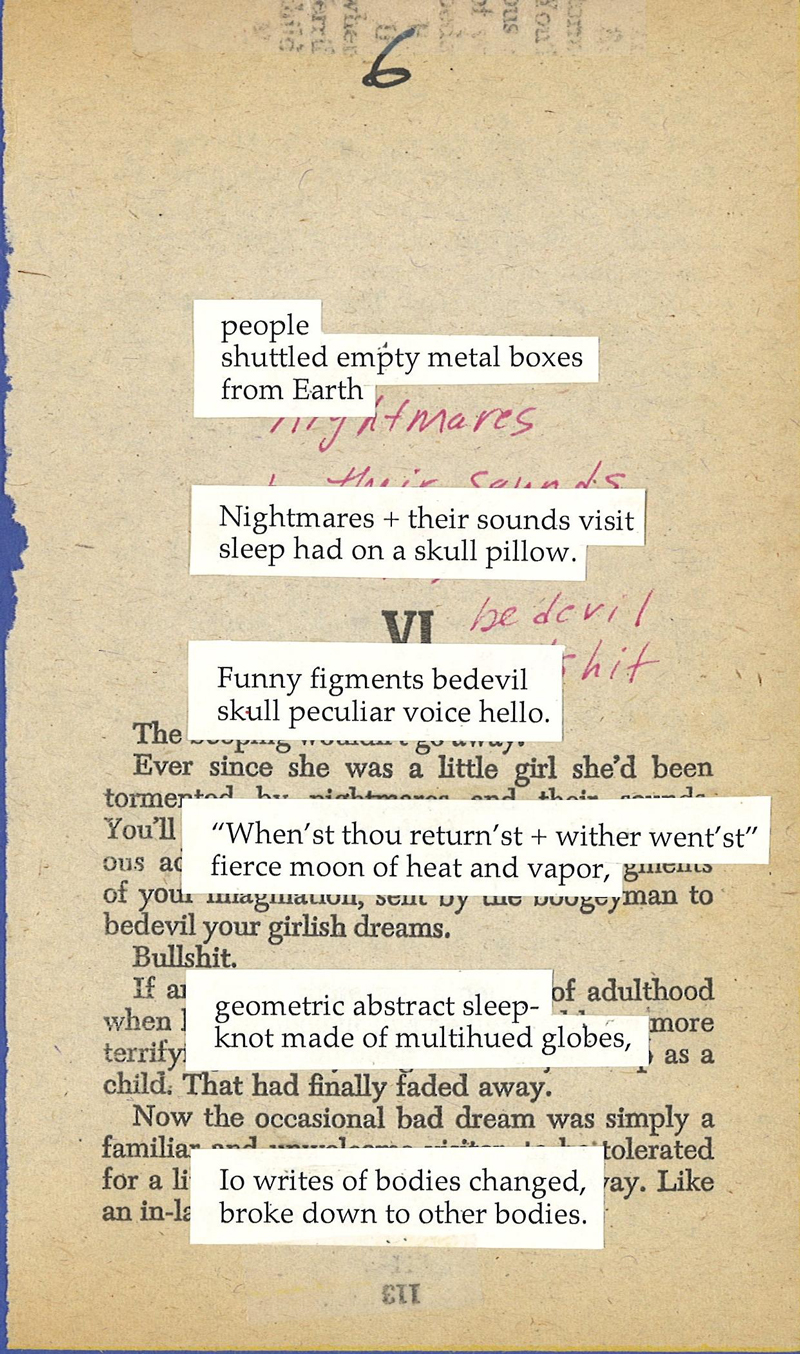 6
people
shuttled empty metal boxes
from Earth
nightmares
their sounds
Nightmares + their sounds visit
sleep had on a skull pillow.
bedevil
VI
shit
Funny figments bedevil
skull peculiar voice hello.
The beeping wouldn't go away.
Ever since she was a little girl she'd been
tormented by nightmares and their sounds.
You'll
"When'st thou return'st + wither went'st"
fierce moon of heat and vapor,
ous figments
of your imagination, sent by the boogeyman to
bedevil your girlish dreams.
Bullshit.
If of adulthood
geometric abstract sleep-
when more
knot made of multihued globes,
as a
child. That had finally faded away.
Now the occasional bad dream was simply a
familiar and unwelcome visitor to be tolerated
for a Like
Io writes of bodies changed,
an
broke down to other bodies.
113